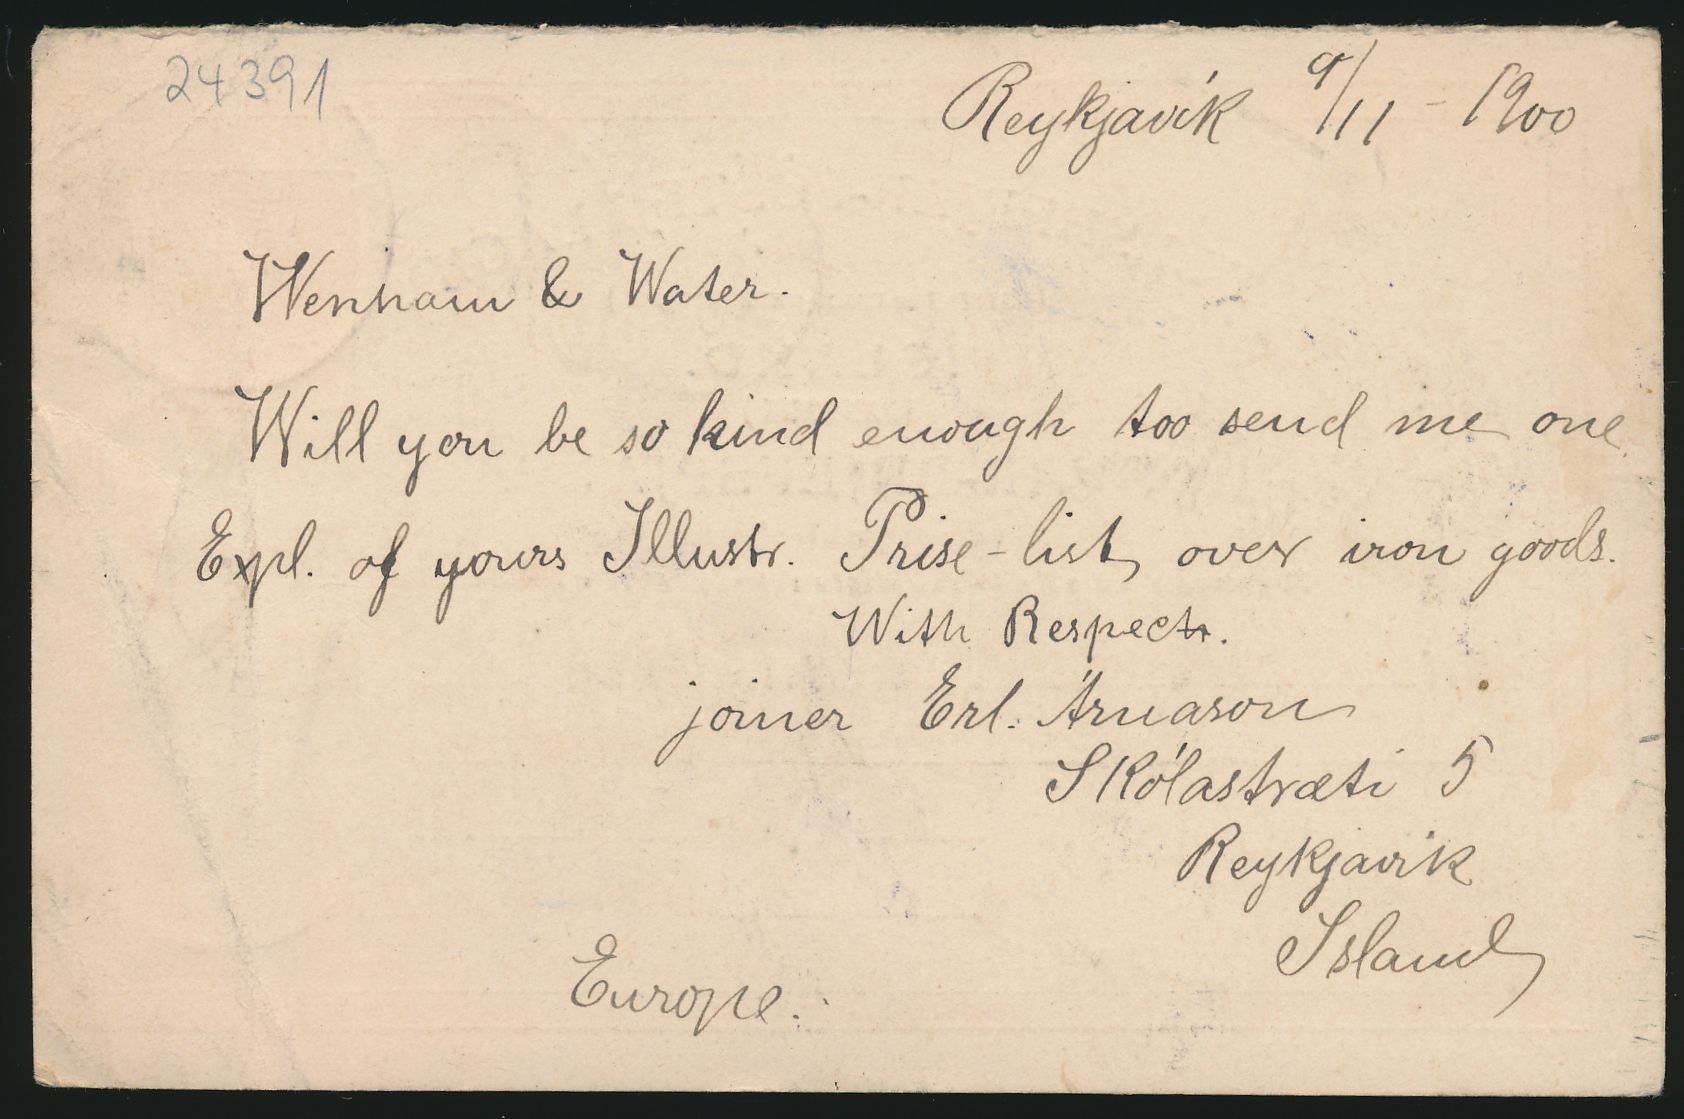 24391
Reykjavík 9/11 - 1900
Wenham & Water.
Will you be so kind enough too send me one
Expl. of yours Illustr. Prise-list, over iron goods.
With Respect.
joiner Erl. Árnason
Skólastræti 5
Reykjavik
Island
Europe.